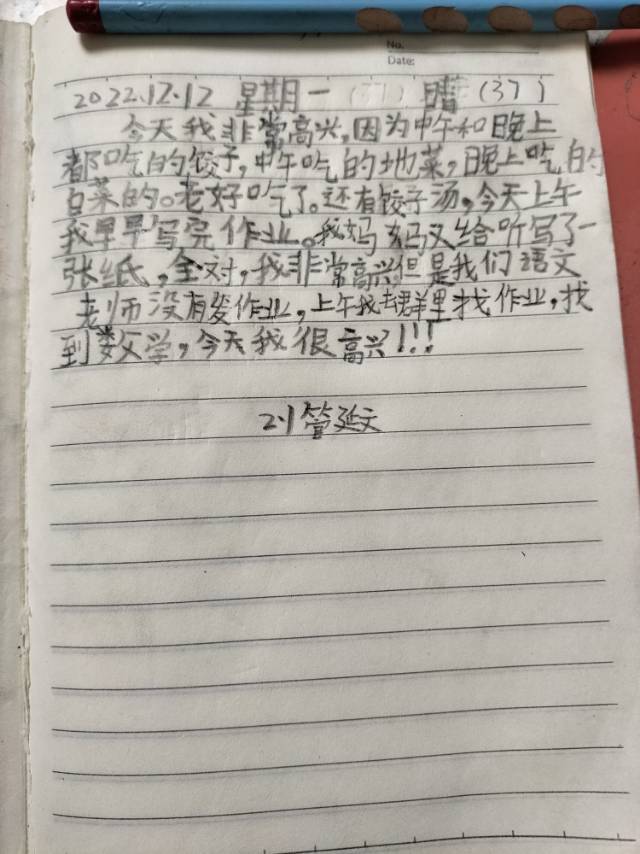 No.
Date:
2022.12.12 星期一 (37) 晴 (37)
今天我非常高兴,因为中午和晚上
都吃的饺子,中午吃的地菜,晚上吃的
白菜的。老好吃了。还有饺子汤,今天上午
我早早写完作业。我妈妈又给听写了一
张纸,全对,我非常高兴,但是我们语文
老师没有发作业,上午我去群里找作业,找
到数学,今天我很高兴!!!
2.1管延文